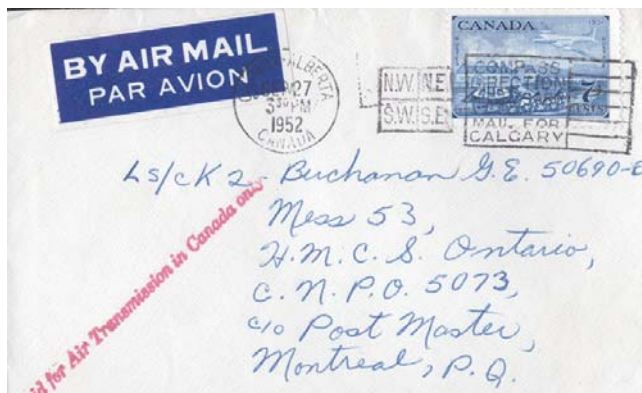 BY AIR MAIL
PAR AVION
ALBERTA
27
3 30 PM
1952
CANADA
N.W. N.E.
S.W. S.E.
CANADA
COMPASS
MAIL FOR
CALGARY
7
Ls/cK 2 - Buchanan G.E. 50690-E
Mess 53,
H.M.C.S. Ontario,
C.N.P.O. 5073,
c/o Post Master,
Montreal, P.Q.
id for Air Transmission in Canada only